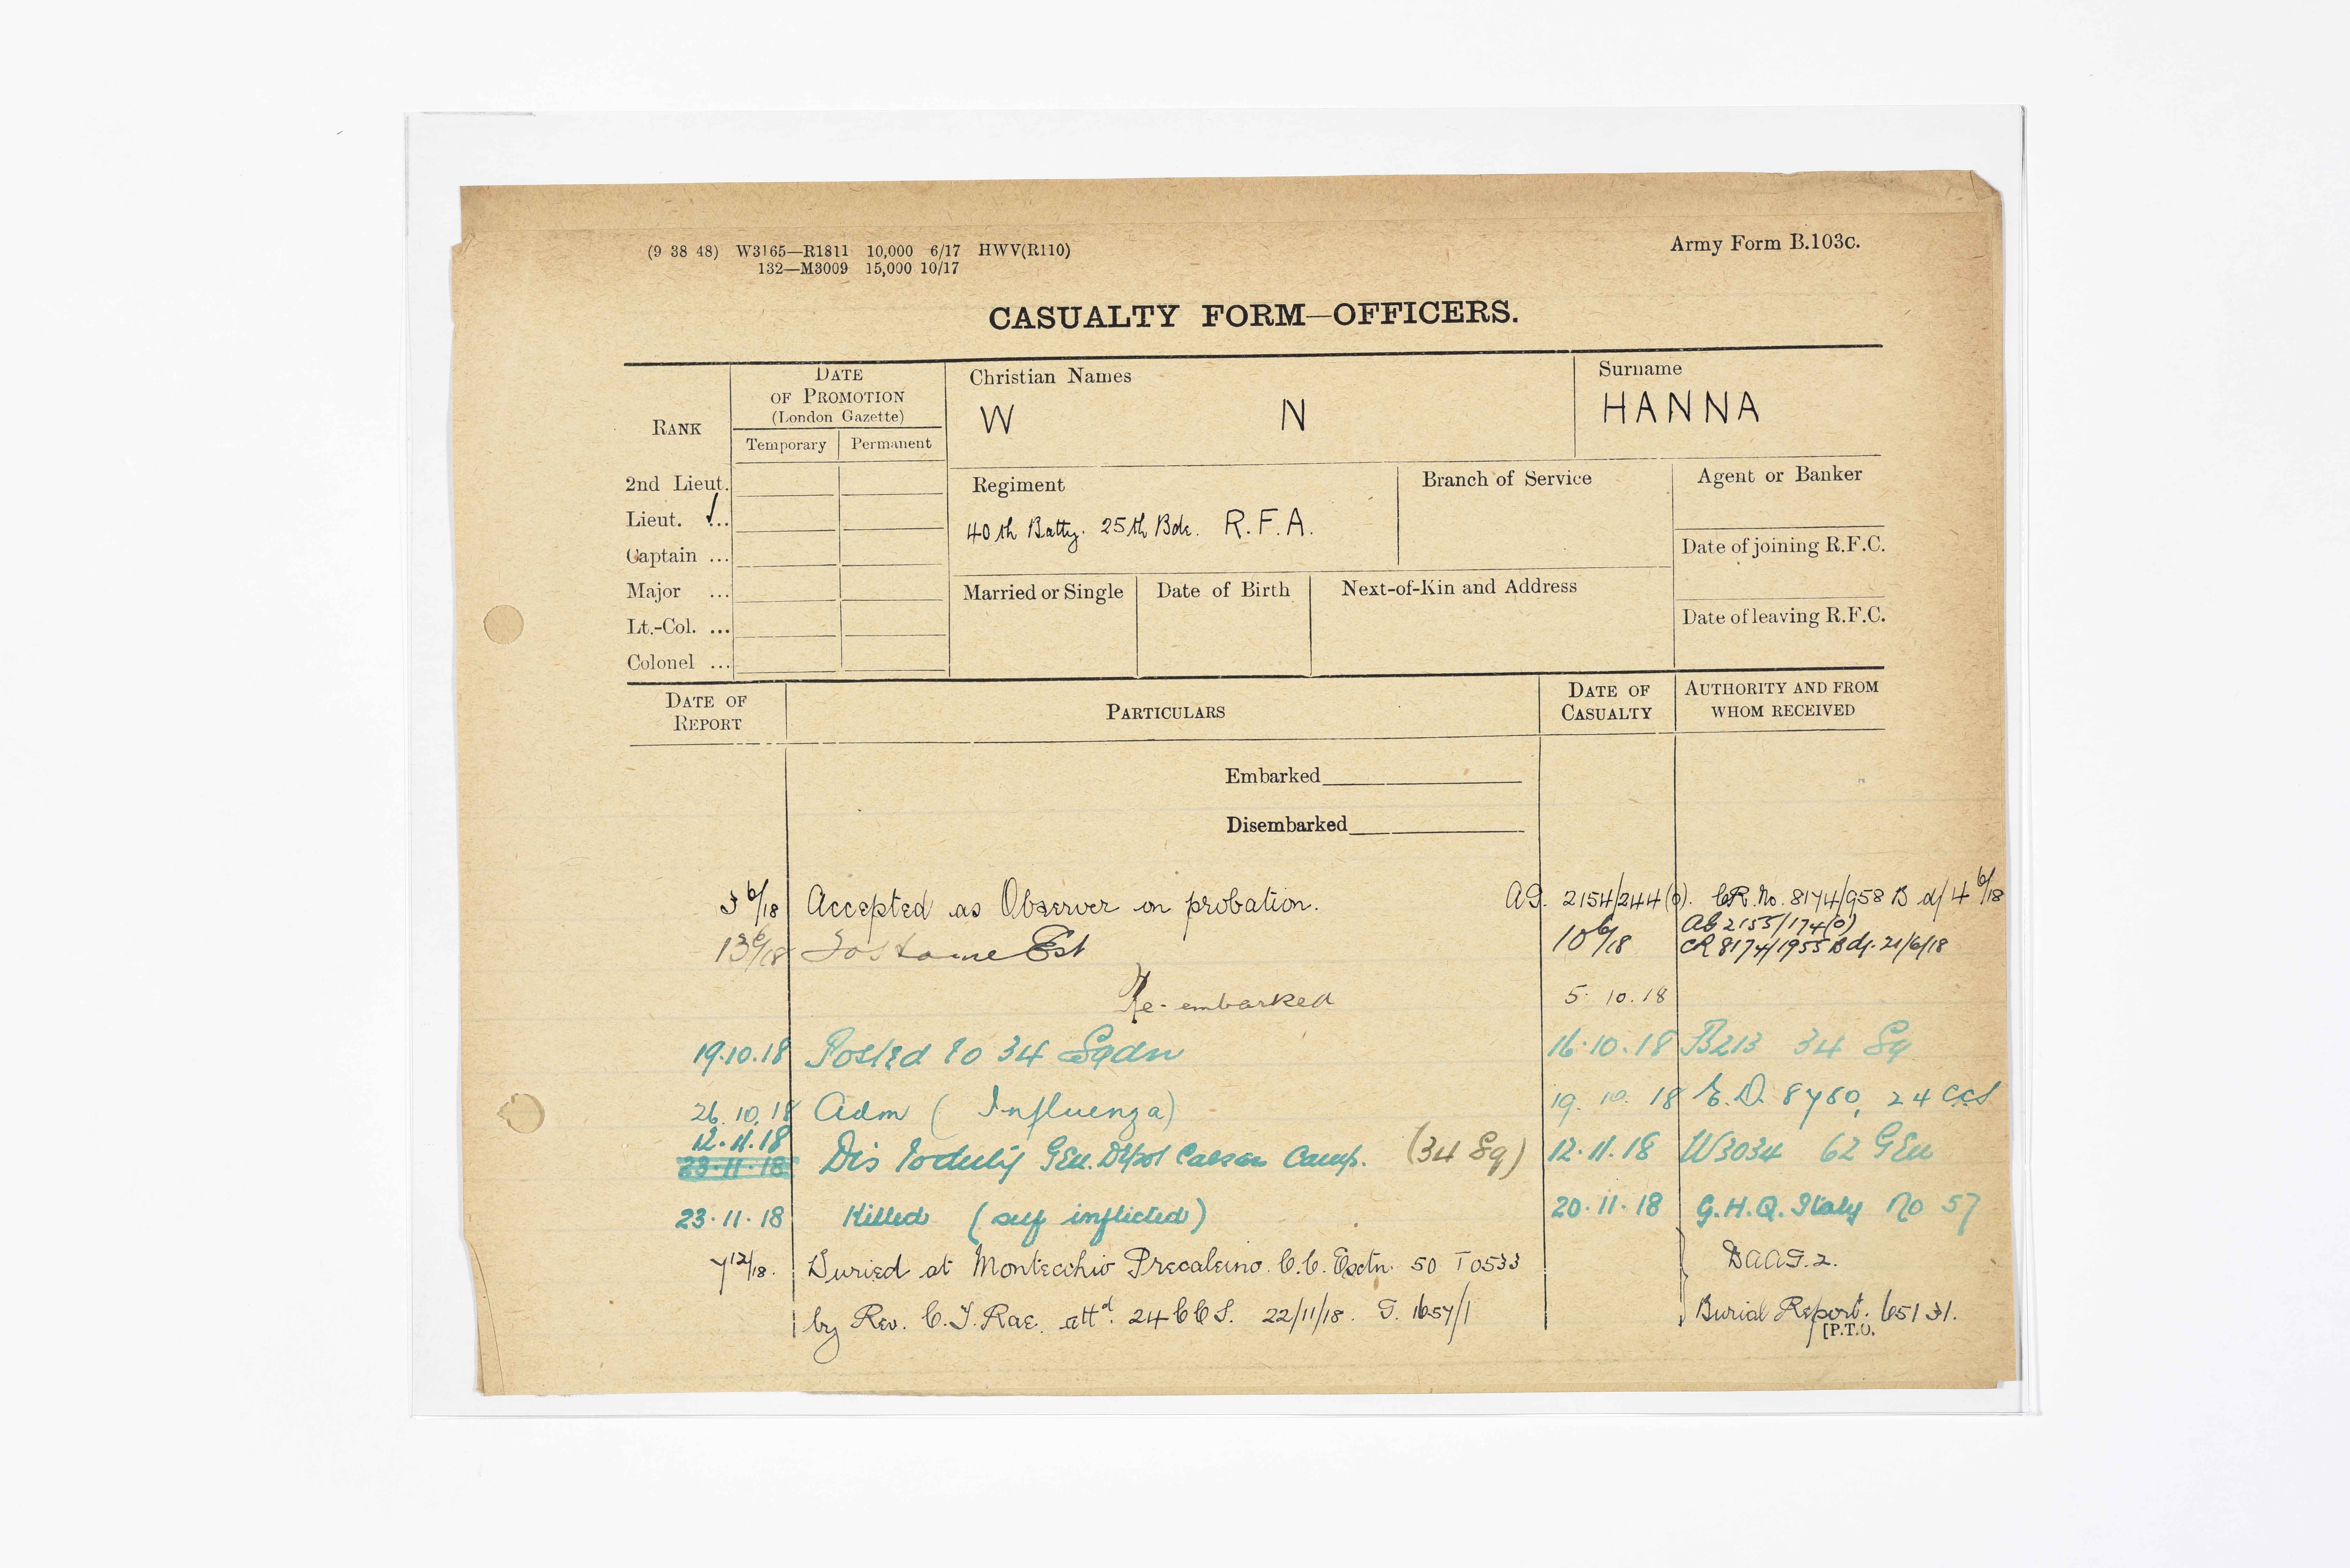 (9 38 48) W3165—R1811 10,000 6/17 HWV(R110)
132—M3009 15,000 10/17
Army Form B.103c.
CASUALTY FORM—OFFICERS.
RANK
DATE OF PROMOTION (London Gazette)
Temporary Permanent
Christian Names
W N
Surname
HANNA
2nd Lieut.
Lieut. ...
Captain ...
Major ...
Lt.-Col. ...
Colonel ...
Regiment
40th Batty. 25th Bde. R.F.A.
Branch of Service
Agent or Banker
Date of joining R.F.C.
Date of leaving R.F.C.
Married or Single
Date of Birth
Next-of-Kin and Address
DATE OF REPORT
PARTICULARS
DATE OF CASUALTY
AUTHORITY AND FROM WHOM RECEIVED
Embarked
Disembarked
3 6/18 Accepted as Observer on probation. AG. 2154/244(o). CR. No. 8174/958 B d/ 4 6/18
13 6/18 To Home Est 10 6/18 AG 2155/174(o)
CR 8174/1955 B d/- 21/6/18
Re-embarked 5.10.18
19.10.18 Posted to 34 Sqdn 16.10.18 B213 34 Sq
26.10.18 Adm (Influenza) 19.10.18 E.D. 8760, 24 CCS
12.11.18
23.11.18 Dis to duty Gen. Depot Caesar Camp. (34 Sq) 12.11.18 W3034 62 Gen
23.11.18 Killed (self inflicted) 20.11.18 G.H.Q. Italy No 57
7 12/18. Buried at Montecchio Precaleino. C.C. Extn. 50 T0533 DAAG.2.
by Rev. C.J. Rae. attd. 24 CCS. 22/11/18. G. 1657/1 Burial Report. 65131.
[P.T.O.